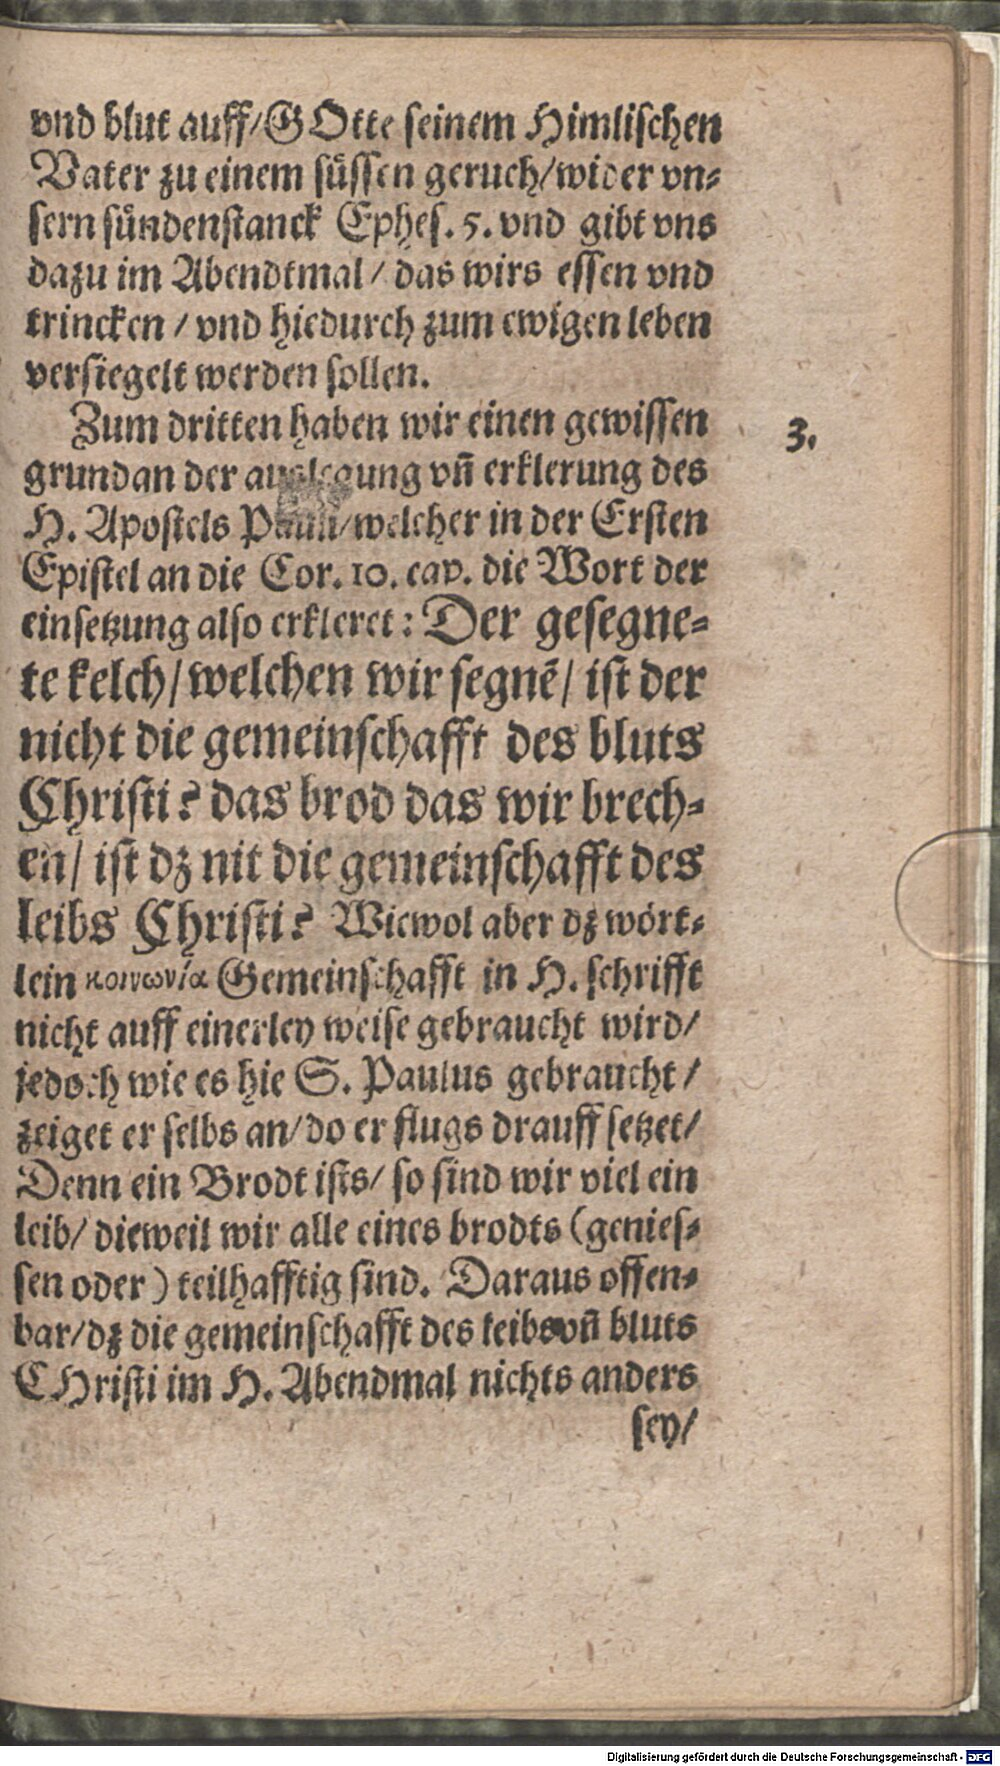 vnd blut auff/GOtte seinem Himlischen
Vater zu einem süssen geruch/wider vn-
sern sündenstanck Ephes. 5. vnd gibt vns
dazu im Abendtmal/ das wirs essen vnd
trincken / vnd hiedurch zum ewigen leben
versiegelt werden sollen.
Zum dritten haben wir einen gewissen
3.
grund an der auslegung vñ erklerung des
H. Apostels Pauli/welcher in der Ersten
Epistel an die Cor. 10. cap. die Wort der
einsetzung also erkleret: Der gesegne-
te kelch/ welchen wir segnẽ/ ist der
nicht die gemeinschafft des bluts
Christi? das brod das wir brech-
en/ ist dz nit die gemeinschafft des
leibs Christi? Wiewol aber dz wört-
lein κοινωνία Gemeinschafft in H. schrifft
nicht auff einerley weise gebraucht wird/
jedoch wie es hie S. Paulus gebraucht/
zeiget er selbs an/do er flugs drauff setzet/
Denn ein Brodt ists/ so sind wir viel ein
leib/ dieweil wir alle eines brodts (genies-
sen oder) teilhafftig sind. Daraus offen-
bar/dz die gemeinschafft des leibs vñ bluts
CHristi im H. Abendmal nichts anders
sey/
Digitalisierung gefördert durch die Deutsche Forschungsgemeinschaft - DFG